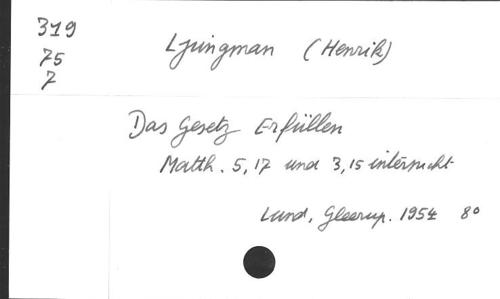 319
75
7
Ljungman (Henrik)
Das Gesetz Erfüllen
Matth. 5,17 und 3,15 untersucht
Lund, Gleerup. 1954 8°